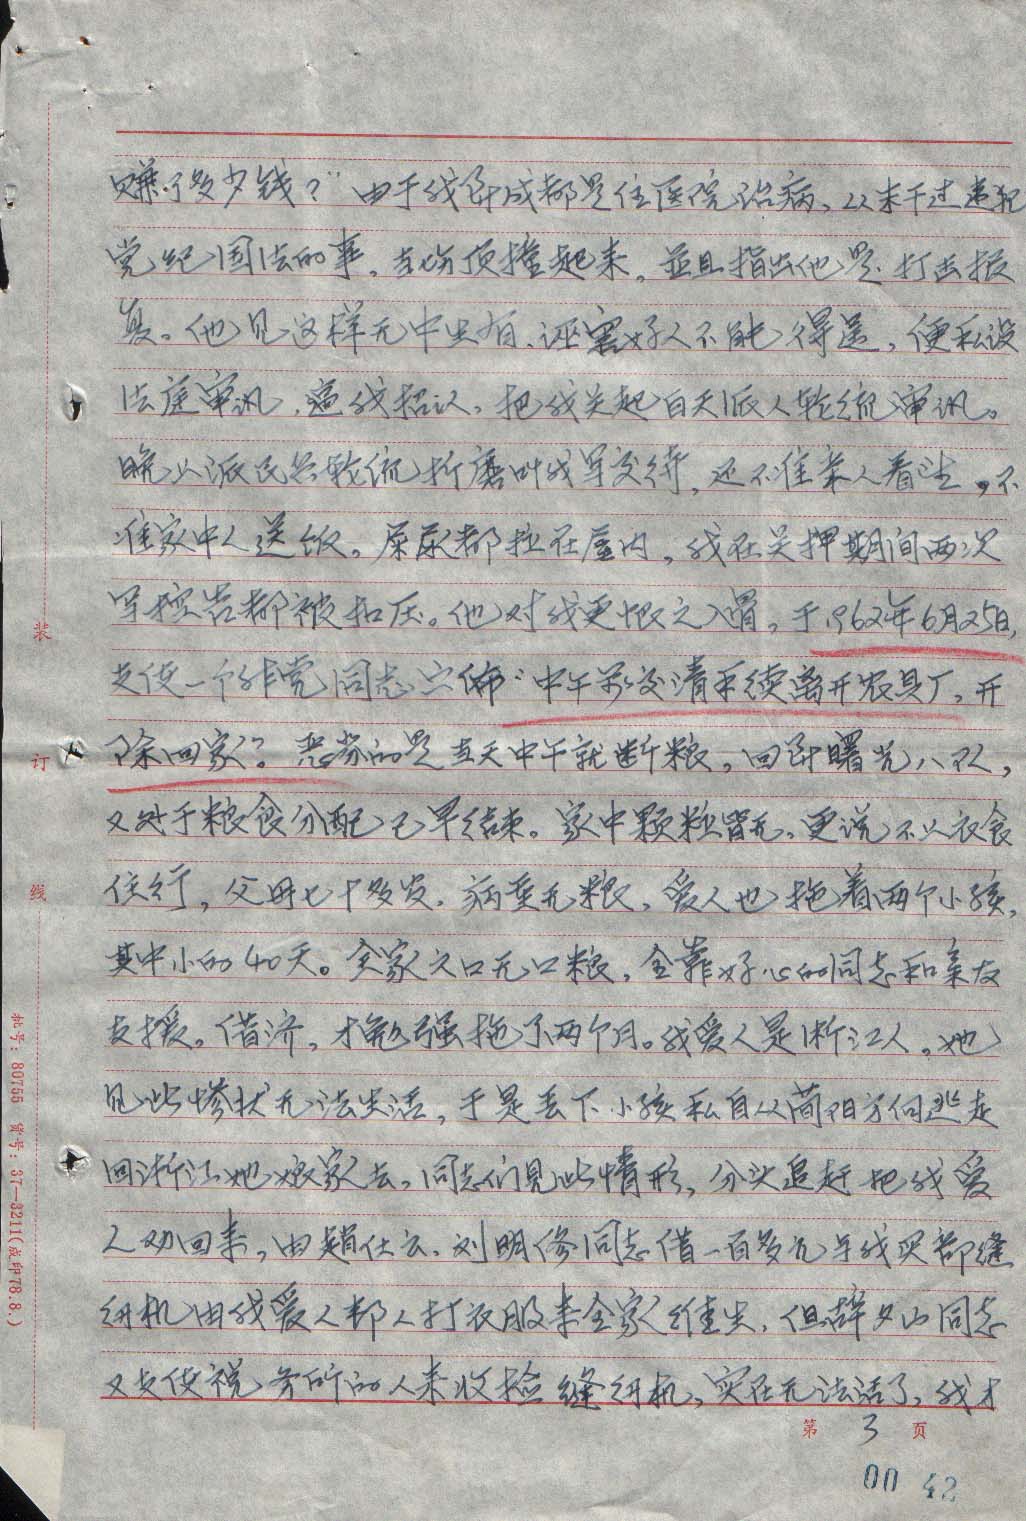 赚了多少钱？”由于我到成都是住医院治病，从未干过违犯
党纪国法的事，当场顶撞起来，并且指出他是打击报
复。他见这样无中生有、诬害好人不能得逞，便私设
法庭审讯，逼我招认，把我关起白天派人轮流审讯。
晚上派民兵轮流折磨叫我写交待，还不准亲人看望，不
准家中人送饭。屎尿都拉在屋内，我在关押期间两次
写控告都被扣压。他对我更恨之入骨，于1962年6月25日，
支使一个非党同志宣佈“中午前交清手续离开农具厂，开
除回家”。恶劣的是当天中午就断粮，回到曙光八队，
又处于粮食分配已早结束。家中颗粒皆无，更说不上衣食
住行，父母七十多岁，病重无粮，爱人也拖着两个小孩，
其中小的40天。全家六口无口粮，全靠好心的同志和亲友
支援。借济，才勉强拖了两个月。我爱人是浙江人，她
见此惨状无法生活，于是丢下小孩私自从简阳方向逃走
回浙江她娘家去，同志们见此情形，分头追赶把我爱
人劝回来，由赵仕云、刘明修同志借一百多元与我买部缝
纫机由我爱人帮人打衣服来全家维生，但薛夕山同志
又支使税务所的人来收捡缝纫机，实在无法活了，我才
第 3 页
00 42
装
订
线
批号：80755 货号：37—3211（成印78.8.）